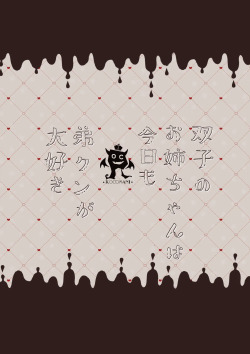 双子の
お姉ちゃんは
今日も
弟クンが
大好き